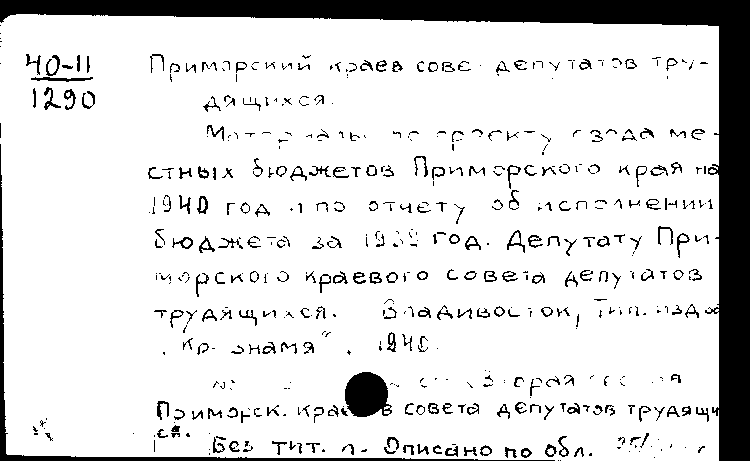 40-11
1290
Приморский краев сове депутатов тру-
дящихся.
Материалы по проекту свода ме-
стных бюджетов Приморского края на
1940 год и по отчету об исполнении
бюджета за 1939 год. Депутату При-
морского краевого совета депутатов
трудящихся. Владивосток, Тип. изд-ва
„Кр. знамя“, 1940.
Вторая сессия
Приморск. краев в совета депутатов трудящи
ся.
Без тит. л. Описано по обл.